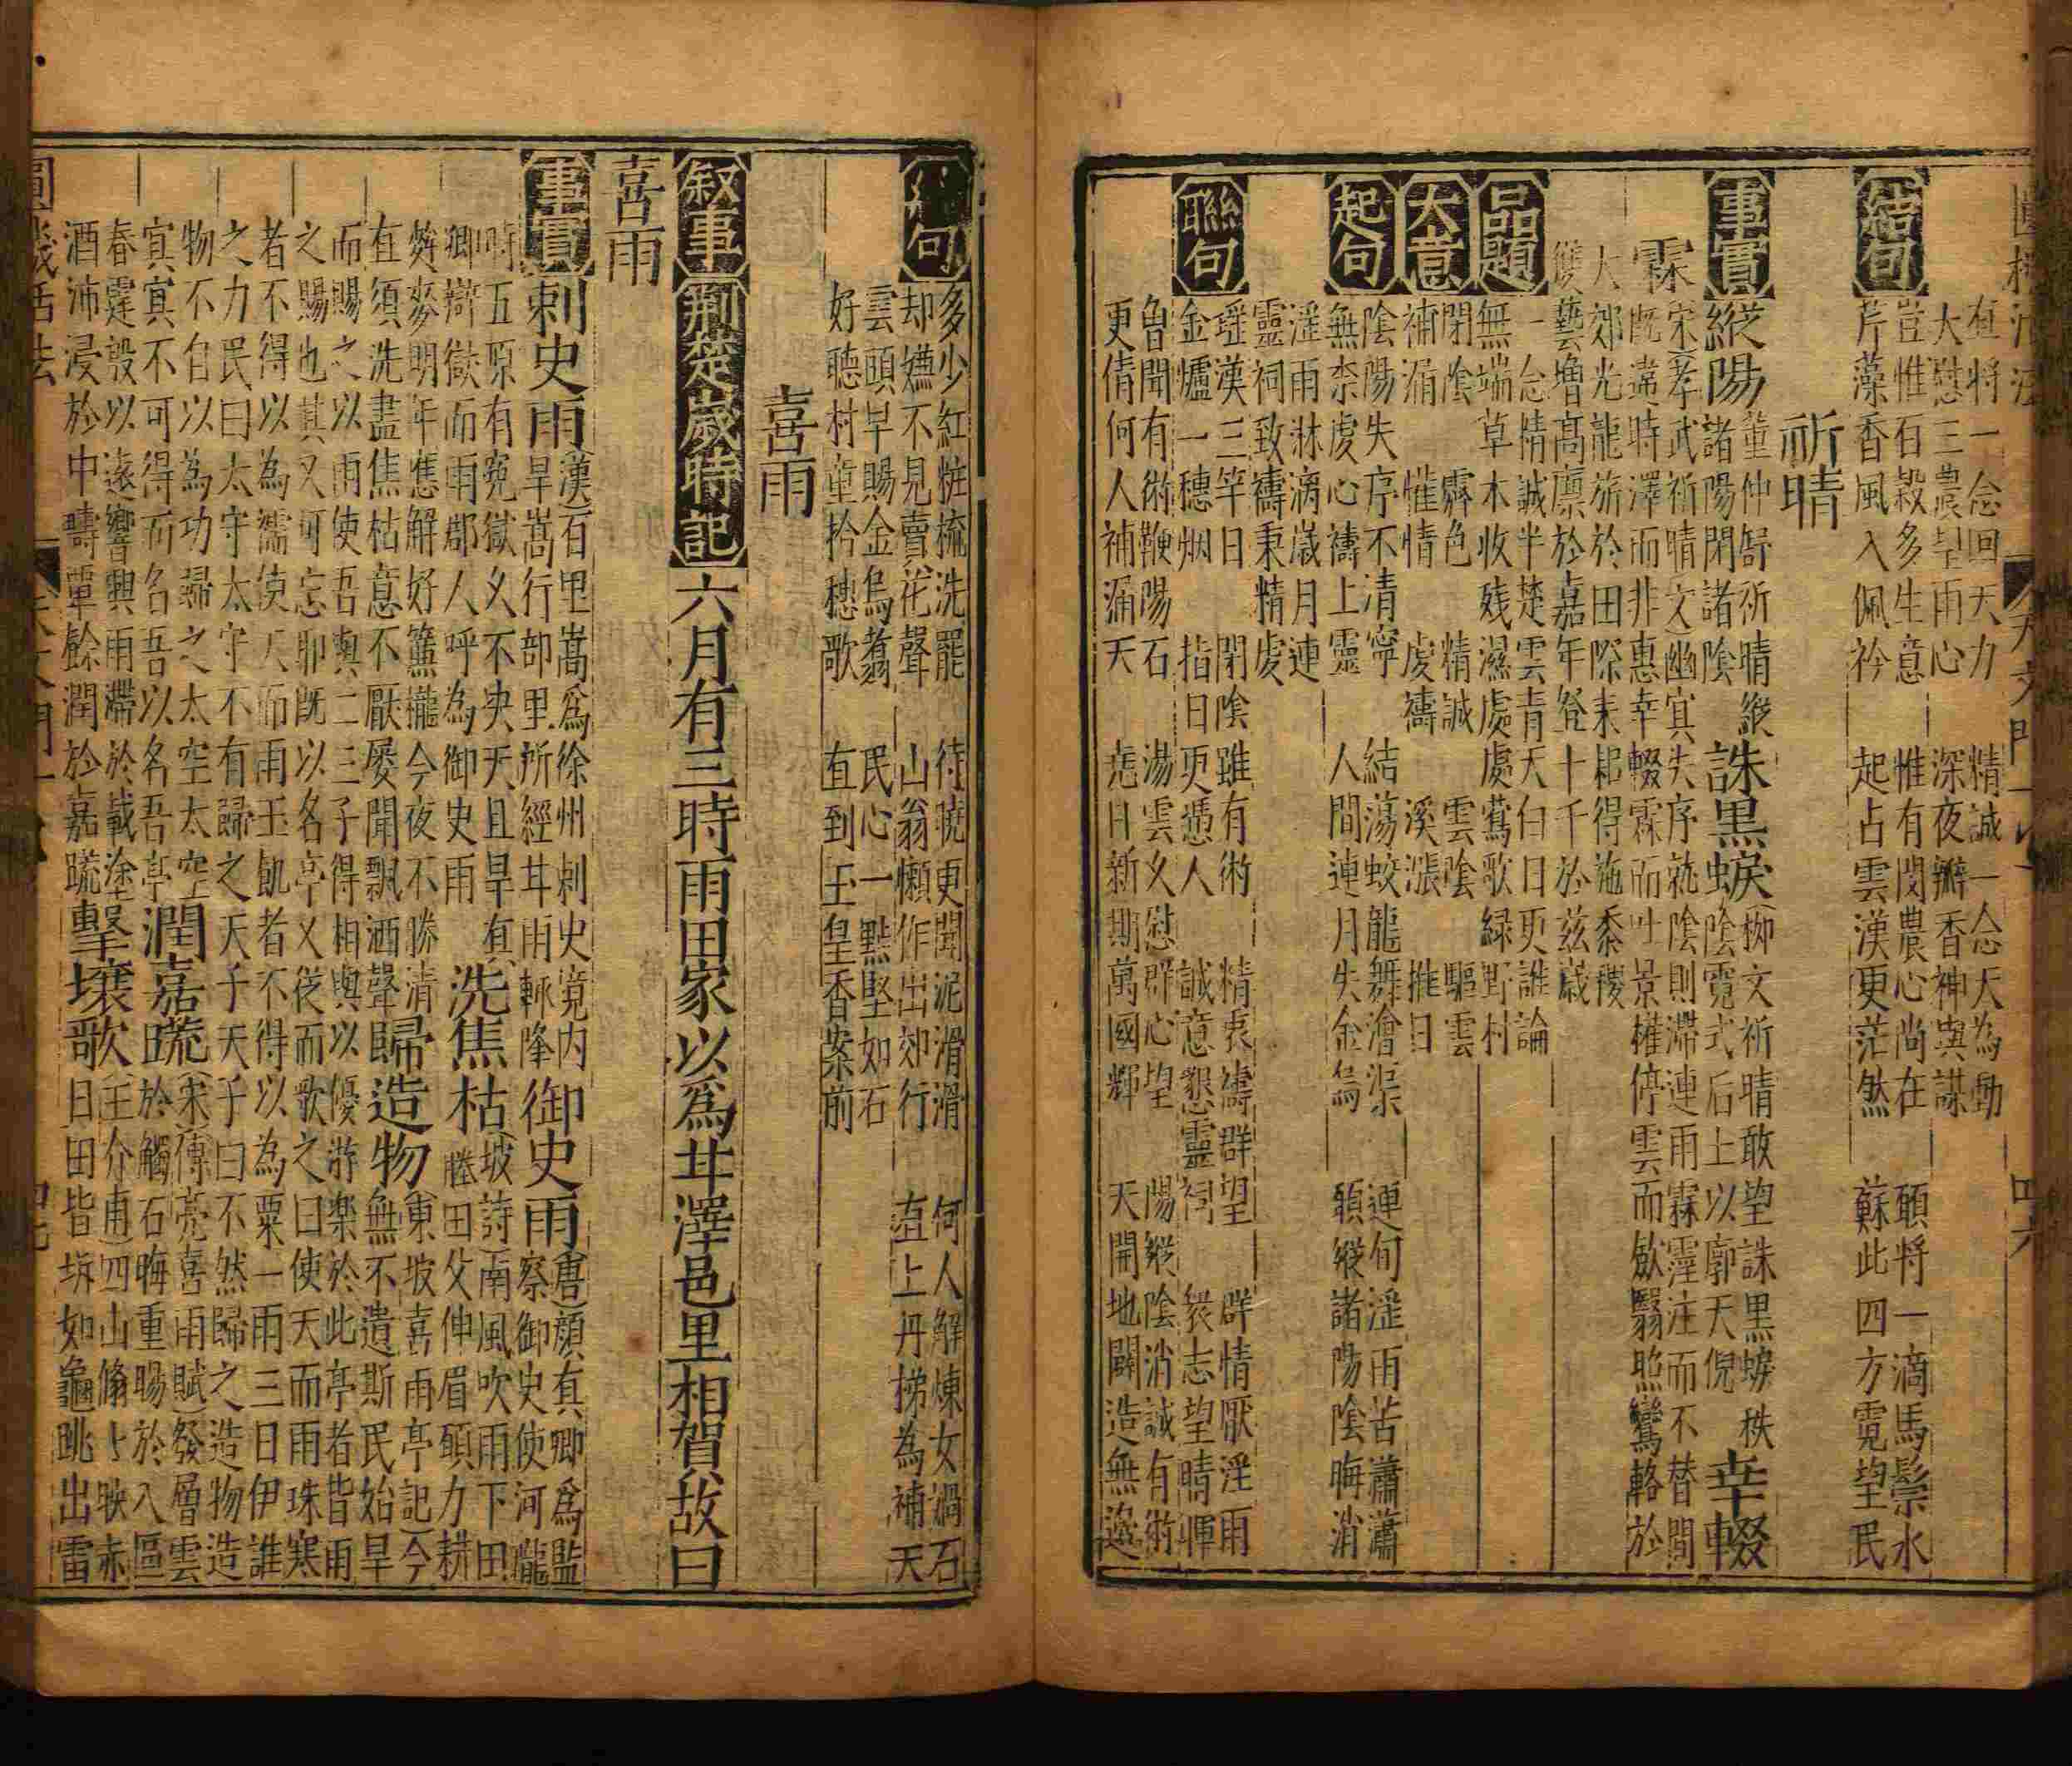 直將一念回天力　精誠一念天為動
大慰三農望雨心　深夜瓣香神與謀
結句
豈惟石穀多生意　惟有閔農心尚在　願將一滴馬鬃水
芹藻香風入佩衿　起占雲漢更茫然　蘇此四方霓望民
祈晴
事實
縱陽
董仲舒祈晴縱
諸陽閉諸陰
誅黒蜧
(柳文祈晴敢望誅黒蜧秩
陰霓式后土以廓天倪
幸輟
霖
宋(孝武祈晴文)幽宜失序就陰則滯連雨霖霪注而不替間
既違時澤而非惠幸輟霖而吐景權停雲而斂翳照鸞輅於
大郊光龍旂於田際耒耜得施黍稷
雙藝增高廪於嘉年登十千於兹歲
品題
一念情誠半楚雲青天白日更誰論
無端草木收残濕處處鶯歌緑野村
大意
閉陰　霽色　精誠　雲陰　驅雲
補漏　惟情　虔禱　溪漲　推日
起句
陰陽失序不清寧　結蕩蛟龍舞澮渠　連旬淫雨苦蕭蕭
無柰虔心禱上靈　人間連月失金烏　願縱諸陽陰晦消
淫雨淋漓嵗月連
靈祠致禱秉精虔
聯句
瑶漢三竿日　閉陰雖有術　精衷禱群望　群情厭淫雨
金爐一穗烟　指日更憑人　誠意懇靈祠　衆志望晴暉
魯聞有術鞭陽石　湯雲乂慰群心望　陽縱陰消誠有術
更倩何人補漏天　堯日新期萬國輝　天開地闢造無邉
句
多少紅粧梳洗罷　待曉更聞泥滑滑　何人解煉女媧石
却嫌不見賣花聲　山翁懶作出郊行　直上丹梯為補天
雲頭早賜金烏翥　民心一㸃堅如石
好聽村童拾穗歌　直到玉皇香案前
喜雨
叙事
荆楚嵗時記
六月有三時雨田家以爲甘澤邑里相賀故曰
喜雨
事實
刺史雨
(漢)百里嵩爲徐州刺史境内
旱嵩行部里所經甘雨輒降
御史雨
(唐)顔真卿爲監
察御史使河隴
時五原有寃獄乆不决天且旱真
卿辯獄而雨郡人呼為御史雨
洗焦枯
(坡詩)南風吹雨下田
塍田父伸眉願力耕
麰麥明年應解好簾櫳今夜不勝清
直須洗盡焦枯意不厭屡聞飄洒聲
歸造物
(東坡喜雨亭記)今
無不遺斯民始旱
而賜之以雨使吾與二三子得相與以優游樂於此亭者皆雨
之賜也其又可忘耶既以名亭又從而歌之曰使天而雨珠寒
者不得以為襦使天而雨玉飢者不得以為粟一雨三日伊誰
之力民曰太守太守不有歸之天子天子曰不然歸之造物造
物不自以為功歸之太空太空
㝠㝠不可得而名吾以名吾亭
潤嘉蔬
(宋)傳亮喜雨賦)發層雲
於觸石晦重暘於入區
春霆殷以遠響興雨滯於載塗
酒沛浸於中疇覃餘潤於嘉蔬
擊壤歌
(王介甫)四山翛翛映赤
日田皆坼如龜眺出雷